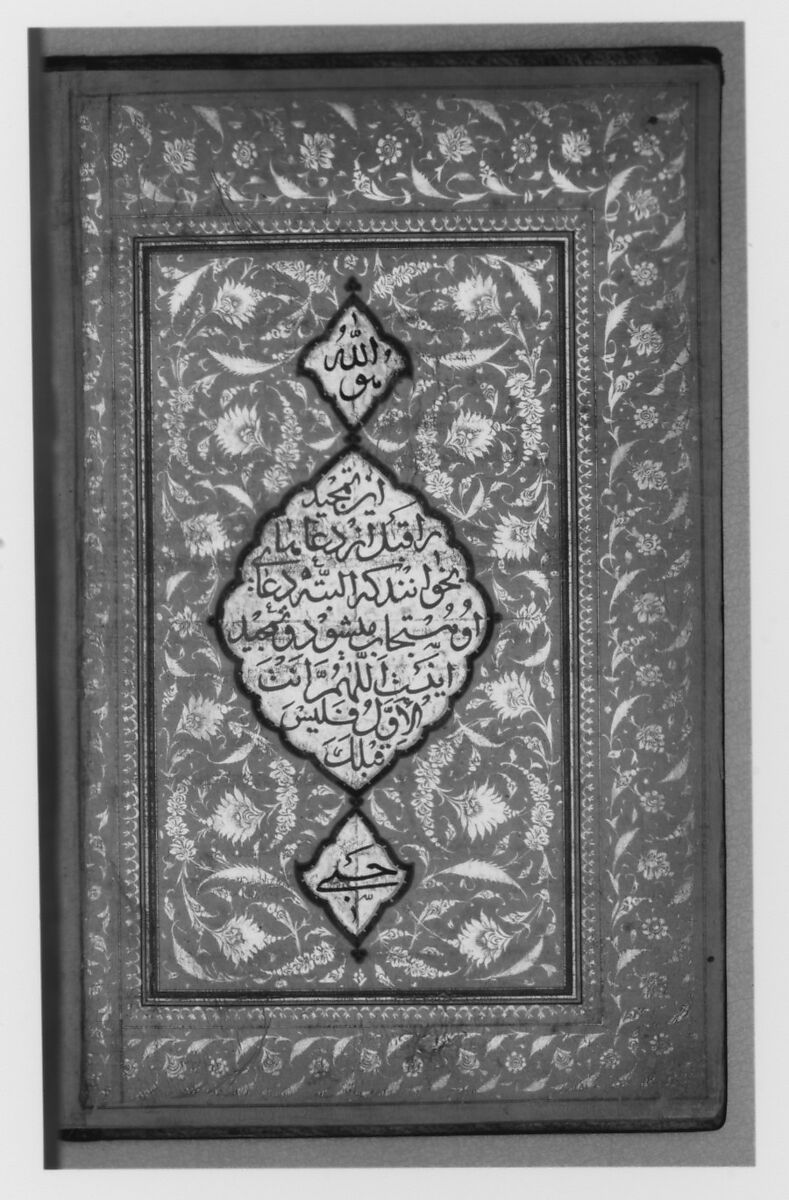 هو الله
این تمجید
را قبل از دعاهای
بخوانند که البتّه دعای
او مُستجاب میشود و تمجید
اینست اَللّهُمَّ اَنْتَ
الْاَوَّلُ فَلَیْسَ
قَبْلَكَ
حَسْبی